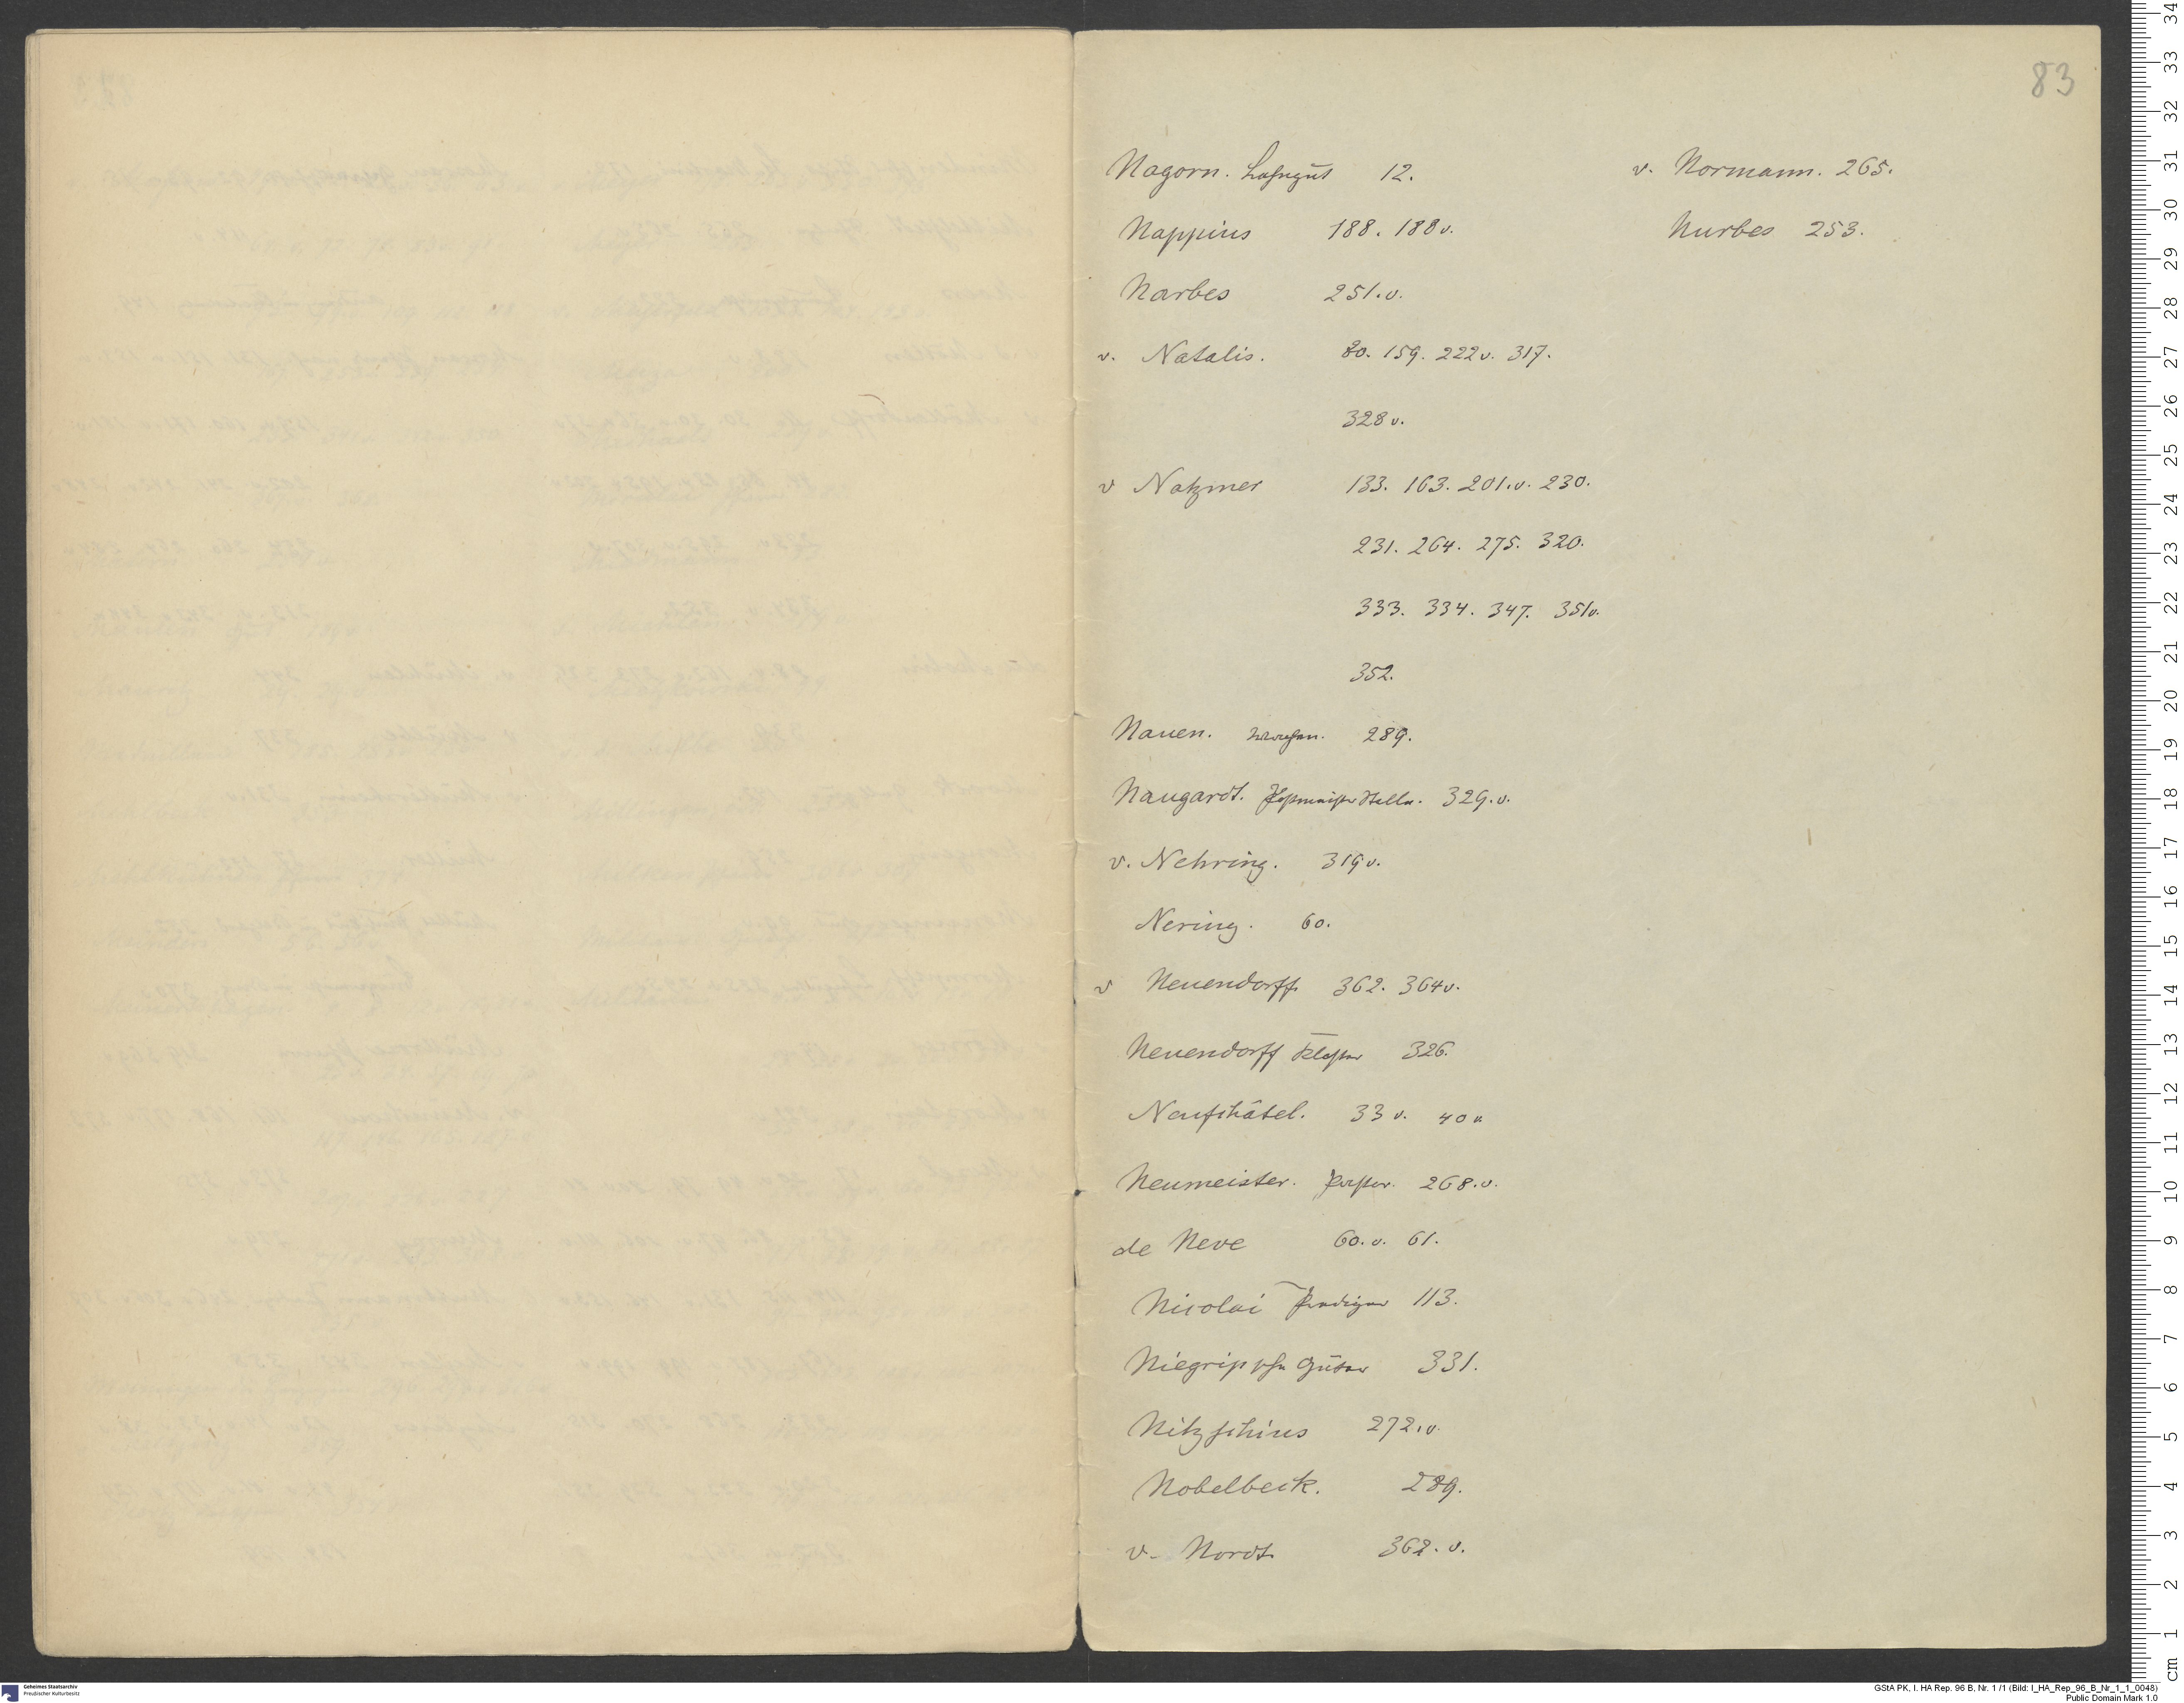 83
Nagorn. Lehngut 12.
Nappius 188. 188v.
Narbes 251.v.
v. Natalis. 80. 159. 222v. 317.
328v.
v Natzmer 133. 163. 201.v. 230.
231. 264. 275. 320.
333. 334. 347. 351v.
352.
Nauen. 289.
Naugardt. Postmeister Stelle. 329.v.
v. Nehring. 319v.
Nering. 60.
v Neuendorff 362. 364v.
Neuendorff Kloster 326.
Neufchâtel. 33v. 40v.
Neumeister. Pastor. 268.v.
de Neve 60.v. 61.
Nicolai Prediger 113.
Niegrippsche Güter 331.
Nitzschius 272.v.
Nobelbeck. 289.
v. Nordt. 362.v.
v. Normann. 265.
Nurbes 253.
Geheimes Staatsarchiv
Preußischer Kulturbesitz
GStA PK, I. HA Rep. 96 B, Nr. 1 /1 (Bild: I_HA_Rep_96_B_Nr_1_1_0048)
Public Domain Mark 1.0